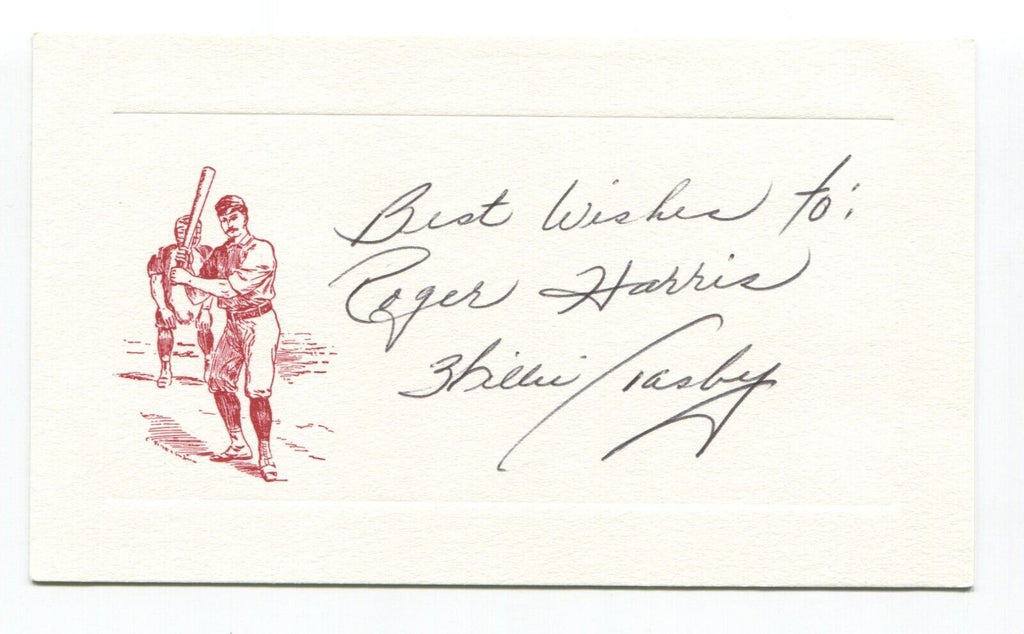 Best Wishes to:
Roger Harris
Willie Tasby